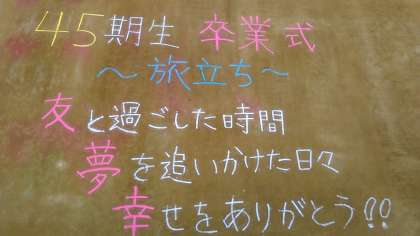 45期生 卒業式
～旅立ち～
友と過ごした時間
夢を追いかけた日々
幸せをありがとう!!